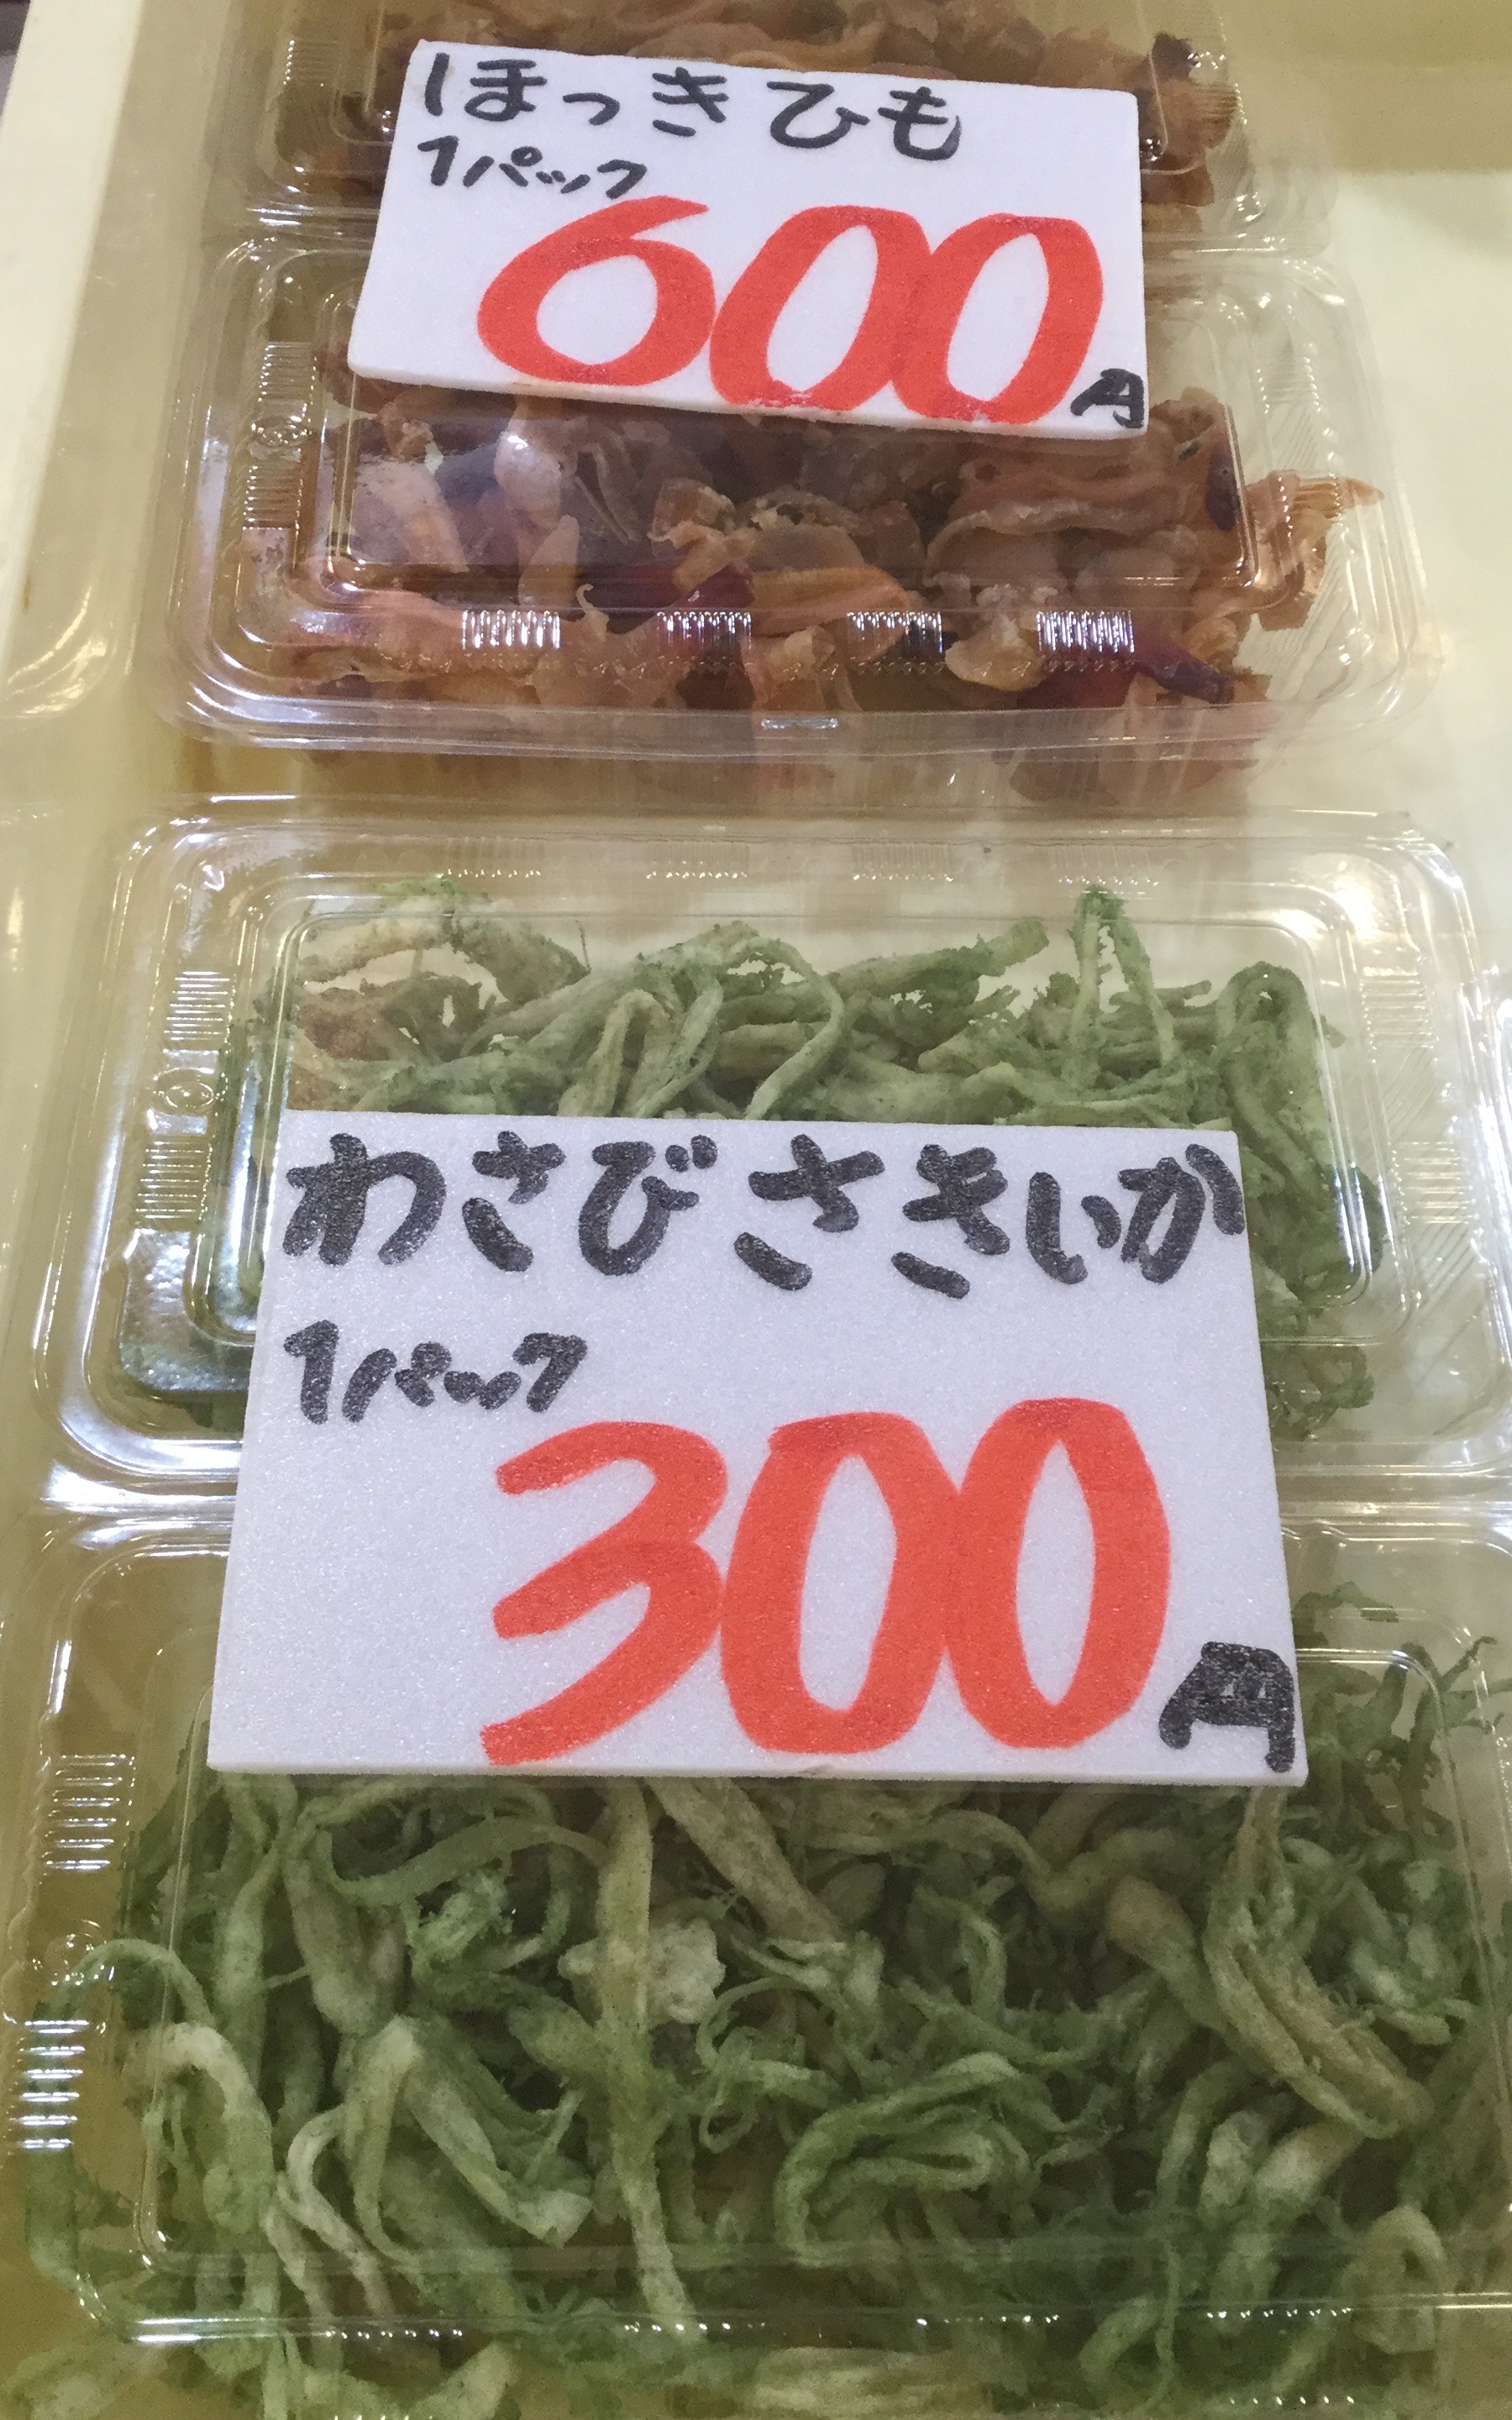 ほっきひも
1パック
600円
わさびさきいか
1パック
300円